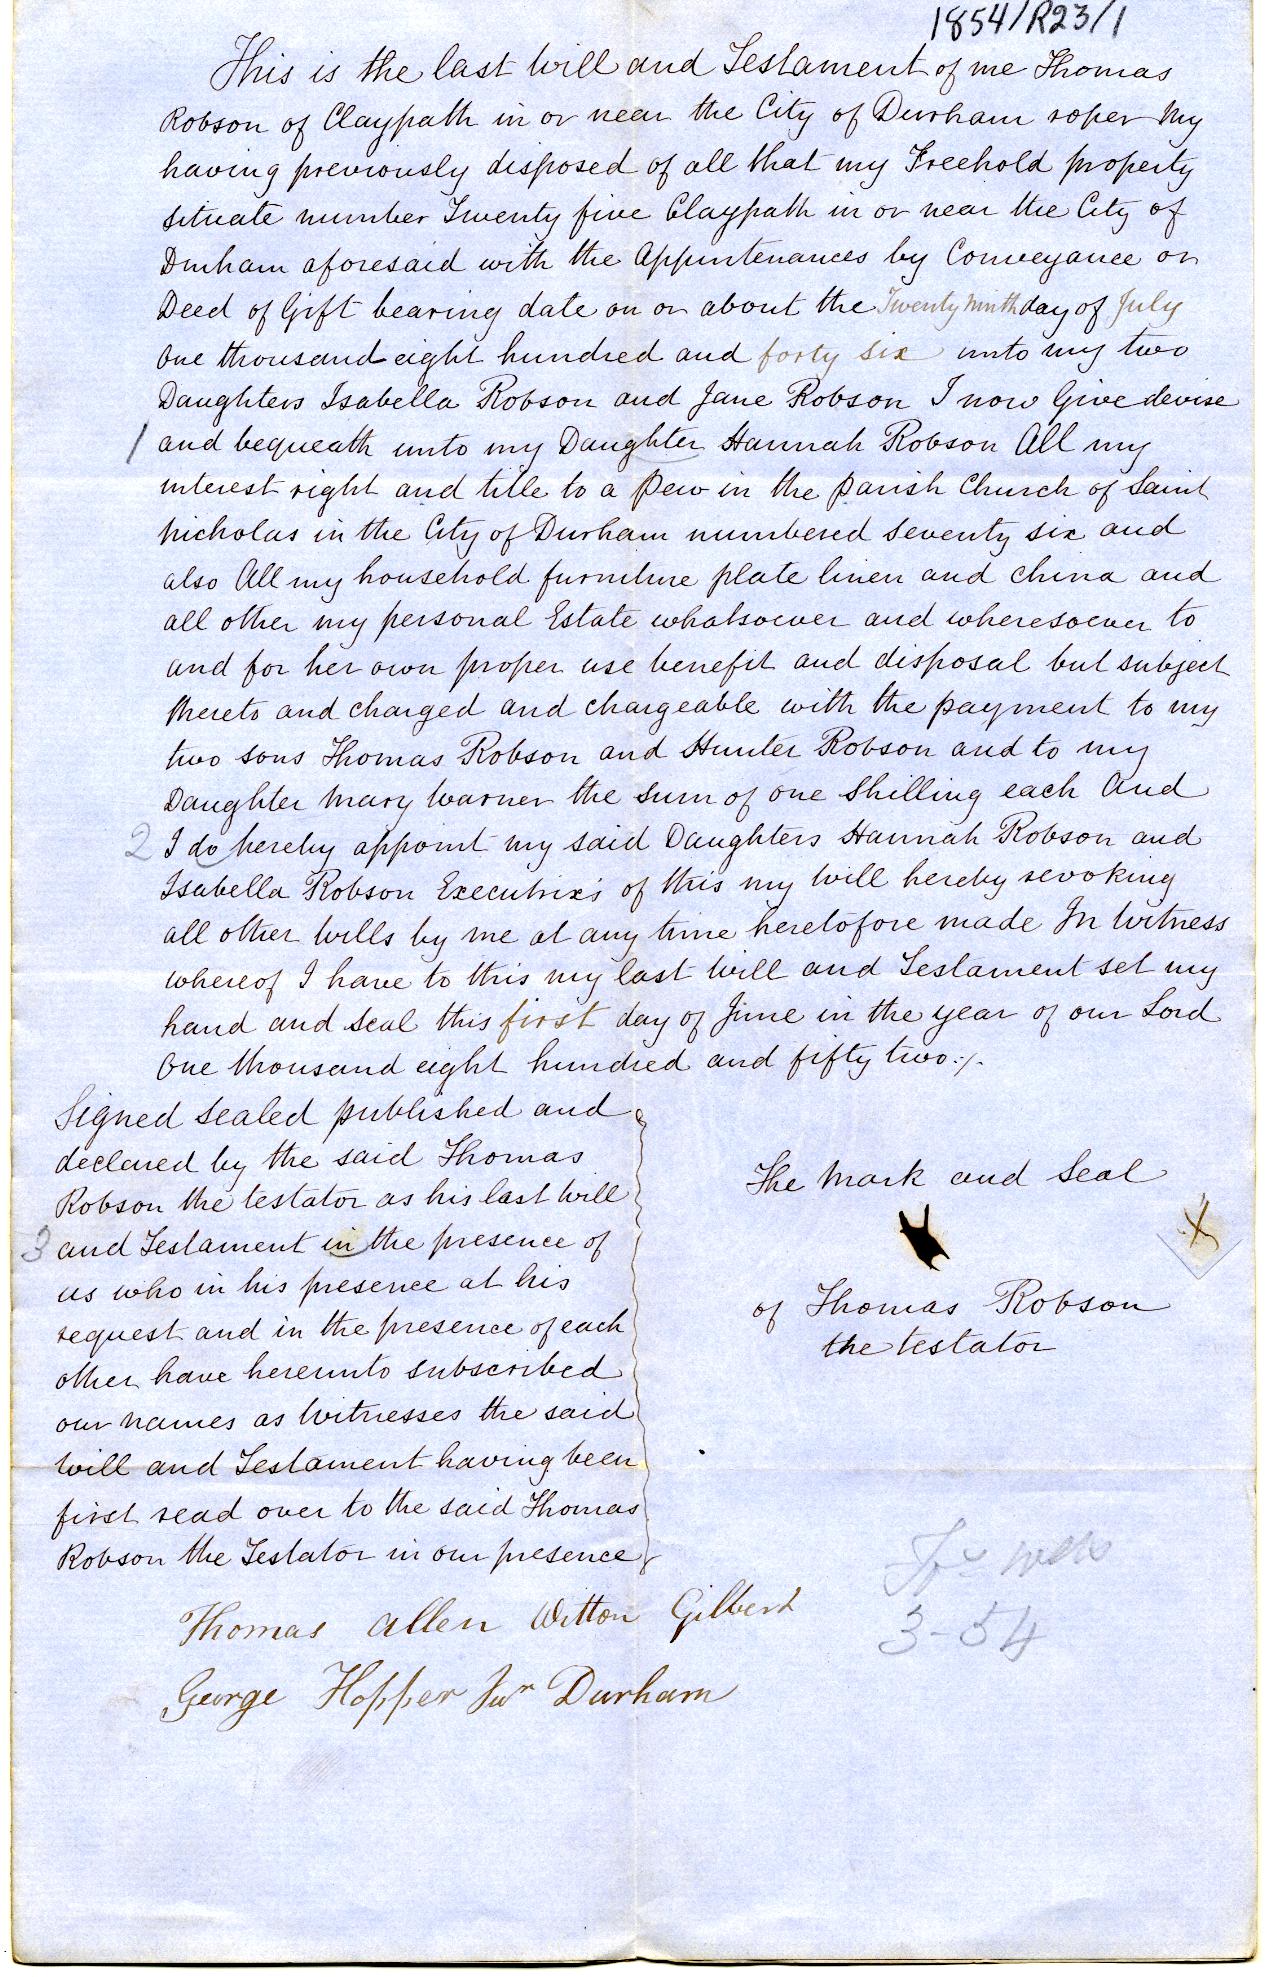 1854/R23/1
This is the last Will and Testament of me Thomas
Robson of Claypath in or near the City of Durham roper My
having previously disposed of all that my Freehold property
situate number Twenty five Claypath in or near the City of
Durham aforesaid with the Appurtenances by Conveyance or
Deed of Gift bearing date on or about the Twenty Ninth day of July
One thousand eight hundred and forty six unto my two
Daughters Isabella Robson and Jane Robson I now Give devise
1 and bequeath unto my Daughter Hannah Robson All my
interest right and title to a Pew in the Parish Church of Saint
Nicholas in the City of Durham numbered seventy six and
also All my household furniture plate linen and china and
all other my personal Estate whatsoever and wheresoever to
and for her own proper use benefit and disposal but subject
thereto and charged and chargeable with the payment to my
two sons Thomas Robson and Hunter Robson and to my
Daughter Mary Warner the sum of one Shilling each And
2 I do hereby appoint my said Daughters Hannah Robson and
Isabella Robson Executrix's of this my Will hereby revoking
all other Wills by me at any time heretofore made In Witness
whereof I have to this my last Will and Testament set my
hand and seal this first day of June in the year of our Lord
One thousand eight hundred and fifty two :/.
Signed sealed published and
declared by the said Thomas
Robson the testator as his last Will
3 and Testament in the presence of
us who in his presence at his
request and in the presence of each
other have hereunto subscribed
our names as Witnesses the said
Will and Testament having been
first read over to the said Thomas
Robson the Testator in our presence
The Mark and Seal
X
of Thomas Robson
the testator
Thomas Allen Witton Gilbert
George Hopper Junr Durham
3-54